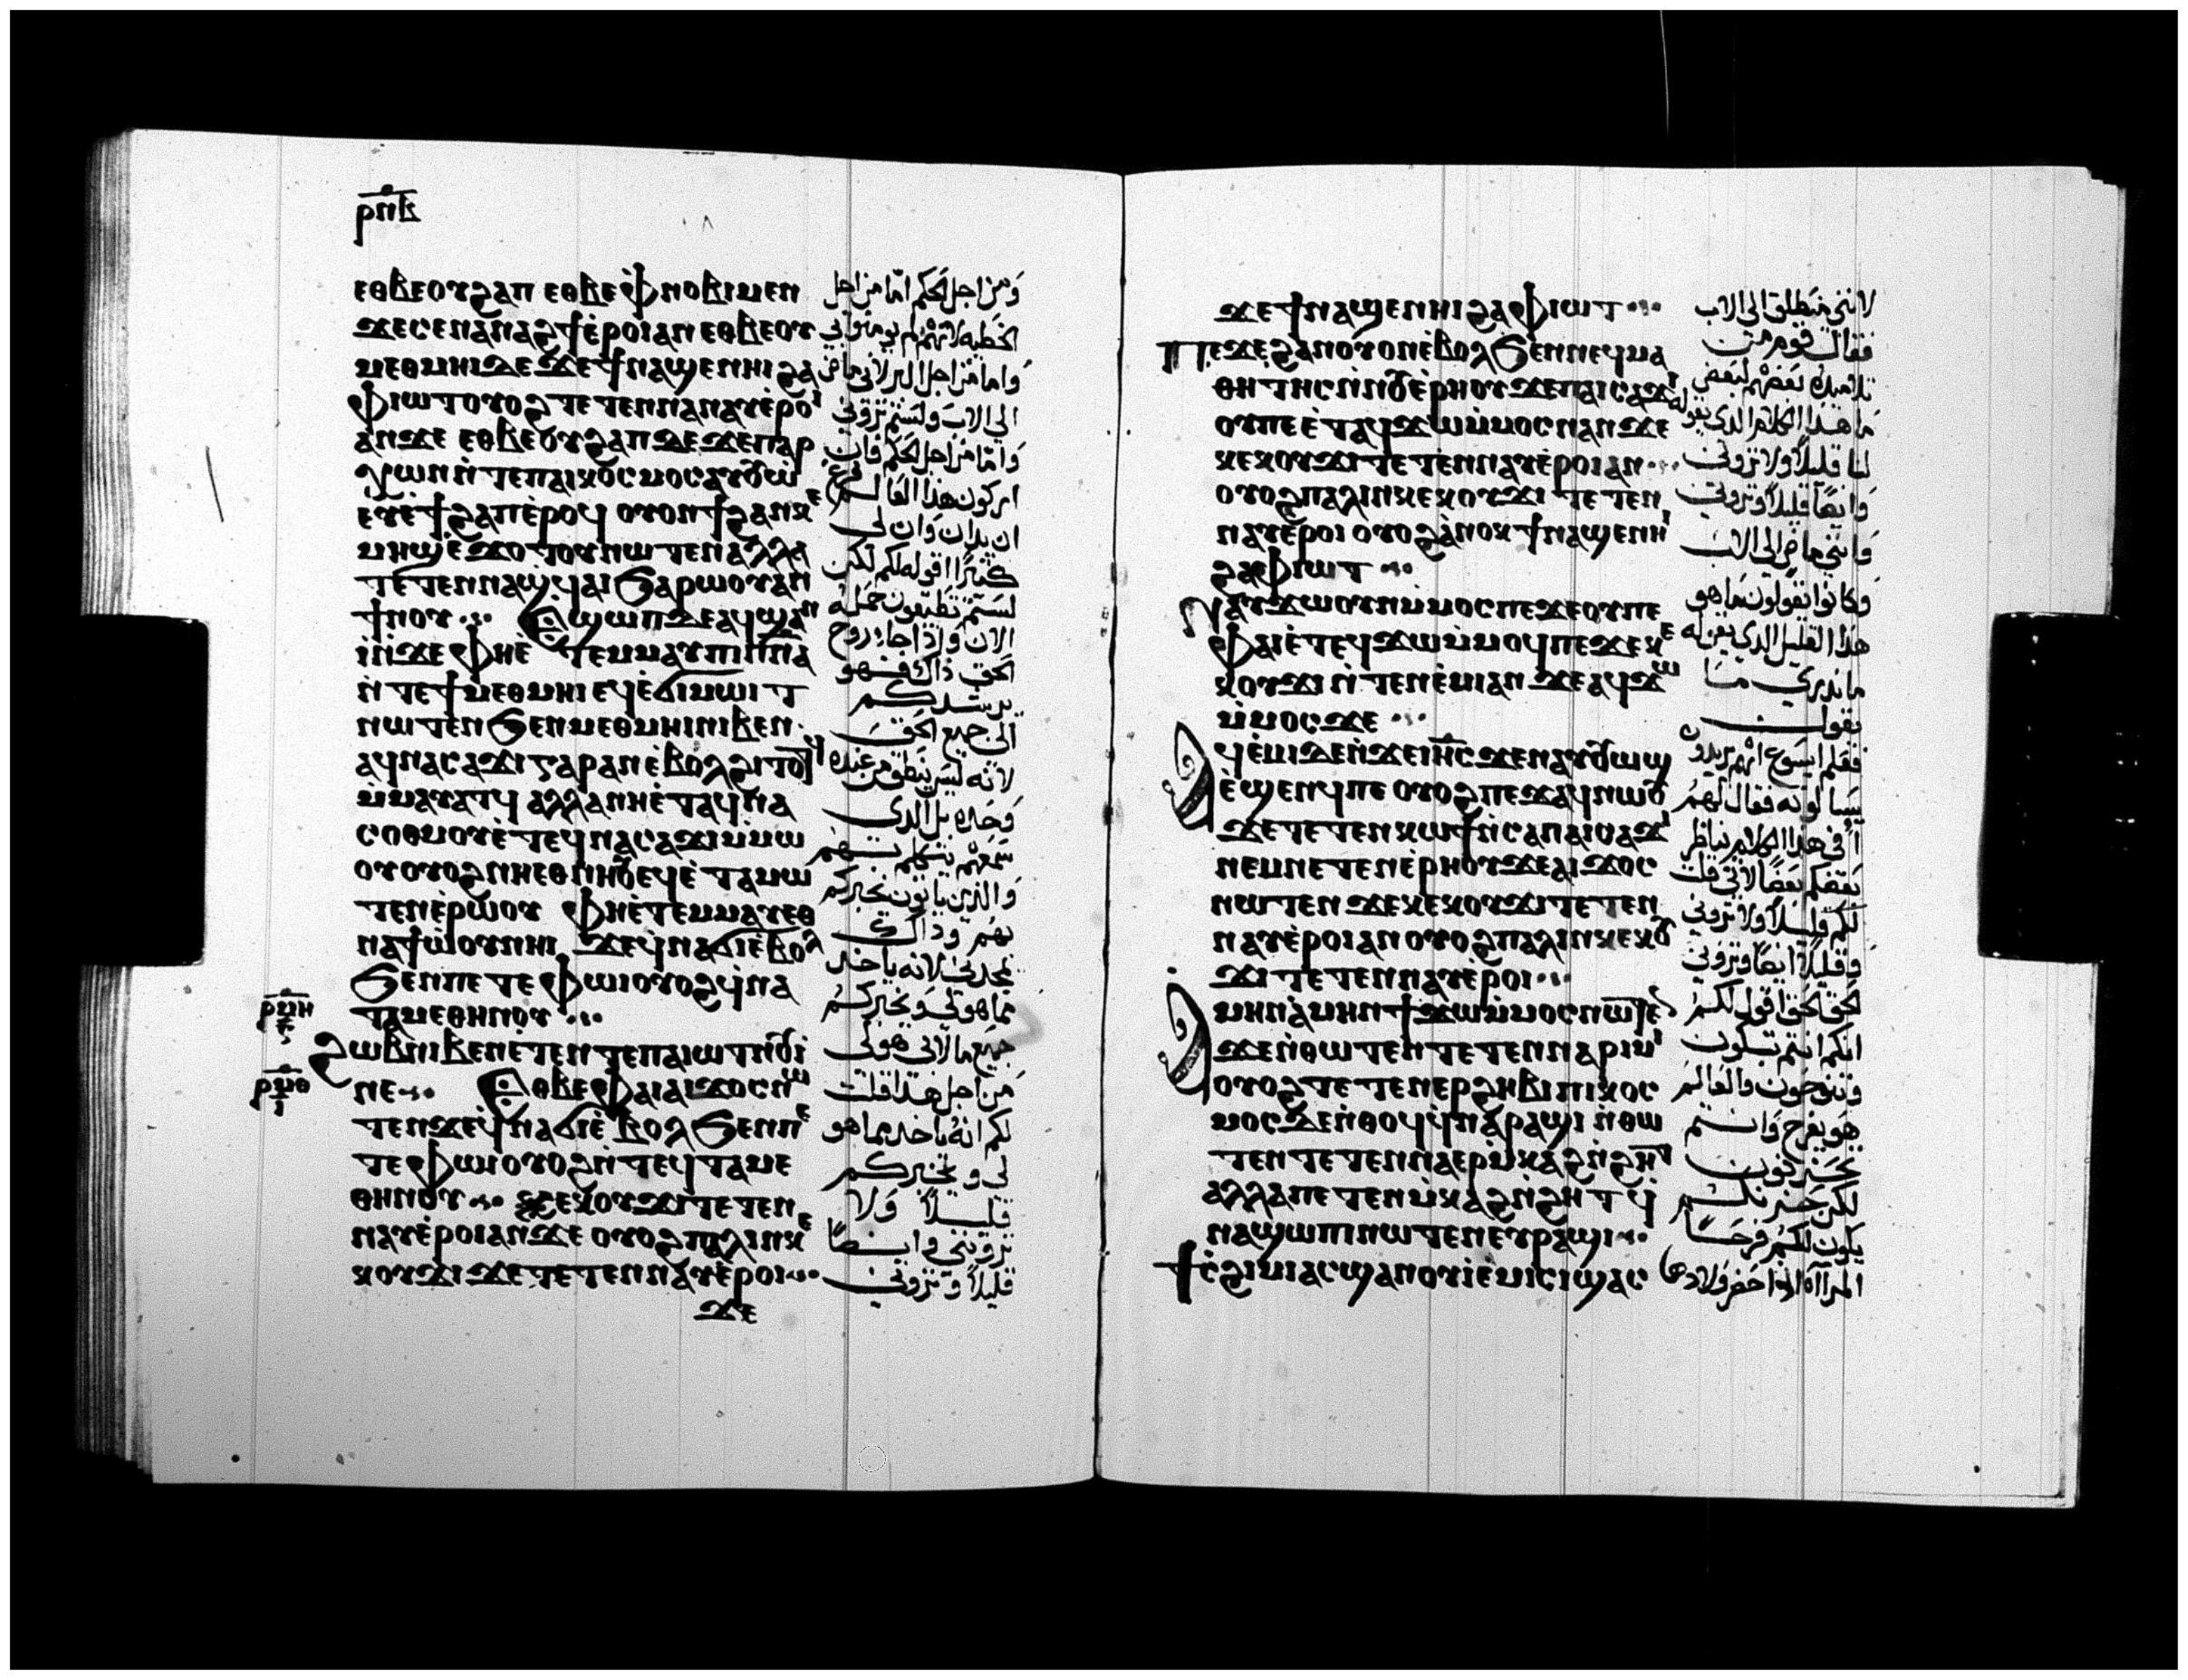 ⲣⲡⲃ
ⲉⲑⲃⲉⲟⲩϩⲁⲡ ⲉⲑⲃⲉⲫⲛⲟⲃⲓⲙⲉⲛ
ϫⲉⲥⲉⲛⲁⲛⲁϩϯⲉⲣⲟⲓⲁⲛ ⲉⲑⲃⲉⲟⲩ
ⲙⲉⲑⲙⲏⲓⲇⲉϫⲉϯⲛⲁϣⲉⲛⲏⲓ ϩⲁ
ⲫⲓⲱⲧⲟⲩⲟϩ ⲧⲉⲧⲉⲛⲛⲁⲛⲁⲩⲉⲣⲟⲓ
ⲁⲛϫⲉ ⲉⲑⲃⲉⲟⲩϩⲁⲡ ⲇⲉϫⲉⲡⲁⲣ
ⲭⲱⲛ ⲛⲧⲉⲡⲁⲓⲕⲟⲥⲙⲟⲥ
ⲉⲩⲉϯϩⲁⲡⲉⲣⲟϥ ⲟⲩⲟⲛϯϩⲁⲛⲕⲉ
ⲙⲏϣⲉϫⲟⲧⲟⲩⲛⲱⲧⲉⲛⲁⲗⲗⲁ
ⲧⲉⲧⲉⲛⲛⲁϣϥⲁⲓϧⲁⲣⲱⲟⲩⲁⲛ
ϯⲛⲟⲩ ⲉϣⲱⲡⲇⲉⲁϥϣⲁⲛ
ⲓⲛϫⲉⲫⲏⲉⲧⲉⲙⲙⲁⲩⲡⲓⲡⲛⲁ
ⲛⲧⲉϯⲙⲉⲑⲙⲏⲓ ⲉϥⲉϭⲓⲙⲱⲓⲧ
ⲛⲱⲧⲉⲛϧⲉⲛⲙⲉⲑⲙⲏⲓⲛⲓⲃⲉⲛ
ⲁϥⲛⲁⲥⲁϫⲓ ⲅⲁⲣⲁⲛⲉⲃⲟⲗϩⲓⲧⲟⲧϥ
ⲙⲙⲁⲩⲁⲧϥ ⲁⲗⲗⲁⲛⲏⲉⲧⲁϥⲛⲁ
ⲥⲟⲑⲙⲟⲩⲉⲧⲉϥⲛⲁⲥⲁϫⲓⲙⲙⲱ
ⲟⲩⲟⲩⲟϩⲛⲏⲉⲑⲛⲏⲟⲩⲉϥⲉⲧⲁⲙⲱ
ⲧⲉⲛⲉⲣⲱⲟⲩ ⲫⲏⲉⲧⲉⲙⲙⲁⲩⲉⲑ
ⲛⲁϯⲱⲟⲩⲛⲏⲓ ϫⲉϥⲛⲁϭⲓⲉⲃⲟⲗ
ϧⲉⲛⲡⲉⲧⲉⲫⲱⲓⲟⲩⲟϩϥⲛⲁ
ⲧⲁⲙⲉⲑⲏⲛⲟⲩ
ⲣⲙⲏ
ϩⲱⲃⲛⲓⲃⲉⲛⲉⲧⲉⲛⲧⲉⲡⲁⲓⲱⲧⲛⲟⲩⲓ
ⲣⲙⲑ
ⲛⲉ ⲉⲑⲃⲉⲫⲁⲓⲁⲓϫⲟⲥⲛⲱ
ⲧⲉⲛϫⲉϥⲛⲁϭⲓⲉⲃⲟⲗϧⲉⲛⲡⲉ
ⲧⲉⲫⲱⲓⲟⲩⲟϩⲛⲧⲉϥⲧⲁⲙⲉ
ⲑⲏⲛⲟⲩ ⲕⲉⲕⲟⲩϫⲓⲧⲉⲧⲉⲛ
ⲛⲁⲩⲉⲣⲟⲓⲁⲛϫⲉ ⲟⲩⲟϩⲡⲁⲗⲓⲛⲕⲉ
ⲕⲟⲩϫⲓ ϫⲉⲧⲉⲧⲉⲛⲛⲁⲩⲉⲣⲟⲓ
ϫⲉ
ومن اجل الحكم اما من اجل
الخطيه لانهم لم يومنوا بي
واما من اجل البر لاني ماض
الي الاب ولستم تروني
واما من اجل الحكم فان
اركون هذا العالم
ان يدان وان لي
كثيرا اقوله لكم لكن
لستم تطيقون حمله
الان واذا جا روح
الحق ذاك فهو
يرشدكم
الى جميع الحق
لانه ليس ينطق من عنده
وحده بل الذي
سمعهم يتكلم بهم
والذين ياتون يخبركم
بهم وذاك
يمجدني لانه ياخد
مما هو لي ويخبركم
جميع ما لابي هو لي
من اجل هذا قلت
لكم انه ياخد مما هو
لي ويخبركم
قليلا ولا
تروني وايضا
قليلا وتروني
ϫⲉϯⲛⲁϣⲉⲛⲏⲓ ϩⲁⲫⲓⲱⲧ
ⲡⲉϫⲉϩⲁⲛⲟⲩⲟⲛⲉⲃⲟⲗϧⲉⲛⲛⲉϥⲙⲁ
ⲑⲏⲧⲏⲥⲛⲛⲟⲩⲉⲣⲏⲟⲩϫⲉⲡⲁⲓⲥⲁϫⲓ
ⲟⲩⲡⲉⲉⲧⲁϥϫⲱⲙⲙⲟⲥⲛⲁⲛϫⲉ
ⲕⲉⲕⲟⲩϫⲓⲧⲉⲧⲉⲛⲛⲁⲩⲉⲣⲟⲓⲁⲛ
ⲟⲩⲟϩⲡⲁⲗⲓⲛⲕⲉⲕⲟⲩϫⲓ ⲧⲉⲧⲉⲛ
ⲛⲁⲩⲉⲣⲟⲓ ⲟⲩⲟϩⲁⲛⲟⲕ ϯⲛⲁϣⲉⲛⲏⲓ
ϩⲁⲫⲓⲱⲧ
ⲛⲁⲩϫⲱⲟⲩⲛⲙⲙⲟⲥⲡⲉϫⲉⲟⲩⲡⲉ
ⲫⲁⲓⲉⲧⲉϥϫⲱⲙⲙⲟϥⲡⲉϫⲉⲕⲉ
ⲕⲟⲩϫⲓ ⲛⲧⲉⲛⲉⲙⲓⲁⲛ ϫⲉⲁϥϫⲱ
ⲙⲙⲟⲥϫⲉ
ⲁϥⲉⲙⲓⲇⲉⲛϫⲉⲓⲏⲥ ϫⲉⲛⲁⲩⲟⲩⲱϣ
ⲉϣⲉⲛϥⲡⲉ ⲟⲩⲟϩⲡⲉϫⲁϥⲛⲱⲟⲩ
ϫⲉⲧⲉⲧⲉⲛⲕⲱϯⲛⲥⲁⲡⲁⲓⲥⲁϫⲓ
ⲛⲉⲙⲛⲉⲧⲉⲛⲉⲣⲏⲟⲩϫⲉⲁⲓϫⲟⲥ
ⲛⲱⲧⲉⲛ ϫⲉⲕⲉⲕⲟⲩϫⲓⲧⲉⲧⲉⲛ
ⲛⲁⲩⲉⲣⲟⲓⲁⲛ ⲟⲩⲟϩⲡⲁⲗⲓⲛⲕⲉⲕⲟⲩ
ϫⲓ ⲧⲉⲧⲉⲛⲛⲁⲩⲉⲣⲟⲓ
ⲁⲙⲏⲛⲁⲙⲏⲛϯϫⲱⲙⲙⲟⲥⲛⲱⲧⲉⲛ
ϫⲉⲛⲑⲱⲧⲉⲛ ⲧⲉⲧⲉⲛⲛⲁⲣⲓⲙⲓ
ⲟⲩⲟϩⲧⲉⲧⲉⲛⲉⲣϩⲏⲃⲓⲡⲓⲕⲟⲥ
ⲙⲟⲥⲇⲉⲛⲑⲟϥϥⲛⲁⲣⲁϣⲓ ⲛⲑⲱ
ⲧⲉⲛ ⲧⲉⲧⲉⲛⲛⲁⲉⲣⲙⲕⲁϩⲛϩⲏⲧ
ⲁⲗⲗⲁⲡⲉⲧⲉⲛⲙⲕⲁϩⲛϩⲏⲧ ϥ
ⲛⲁϣⲱⲡⲓⲛⲱⲧⲉⲛⲉⲩⲣⲁϣⲓ
ϯⲥϩⲓⲙⲓⲁⲥϣⲁⲛⲟⲩⲓⲉⲙⲓⲥⲓϣⲁⲥ
لانني منطلق الى الاب
فقال قوم من
تلاميده بعضهم لبعض
ما هذا الكلام الدى يقوله
لنا قليلا ولا تروني
وايضا قليلا وتروني
وانني ماض الى الاب
وكانوا يقولون ما هو
هذا القليل الدي يقوله
ما ندري ما
يقول
فعلم ايسوع انهم يريدون
يسالونه فقال لهم
افي هذا الكلام يناظر
بعضكم بعضا لاني قلت
لكم قليلا ولا تروني
وقليلا ايضا وتروني
الحق الحق اقول لكم
انكم انتم تبكون
وتنوحون والعالم
هو يفرح وانتم
تحزنون
لكن حزنكم
يكون لكم فرحا
المراه اذا حضر ولادها